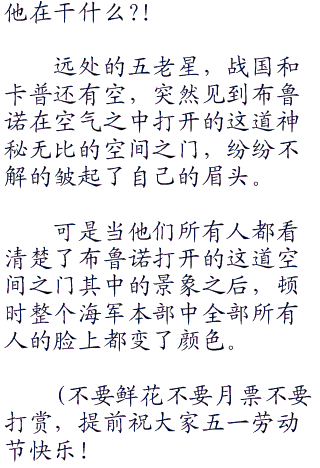 他在干什么?!
远处的五老星，战国和
卡普还有空，突然见到布鲁
诺在空气之中打开的这道神
秘无比的空间之门，纷纷不
解的皱起了自己的眉头。
可是当他们所有人都看
清楚了布鲁诺打开的这道空
间之门其中的景象之后，顿
时整个海军本部中全部所有
人的脸上都变了颜色。
(不要鲜花不要月票不要
打赏，提前祝大家五一劳动
节快乐!